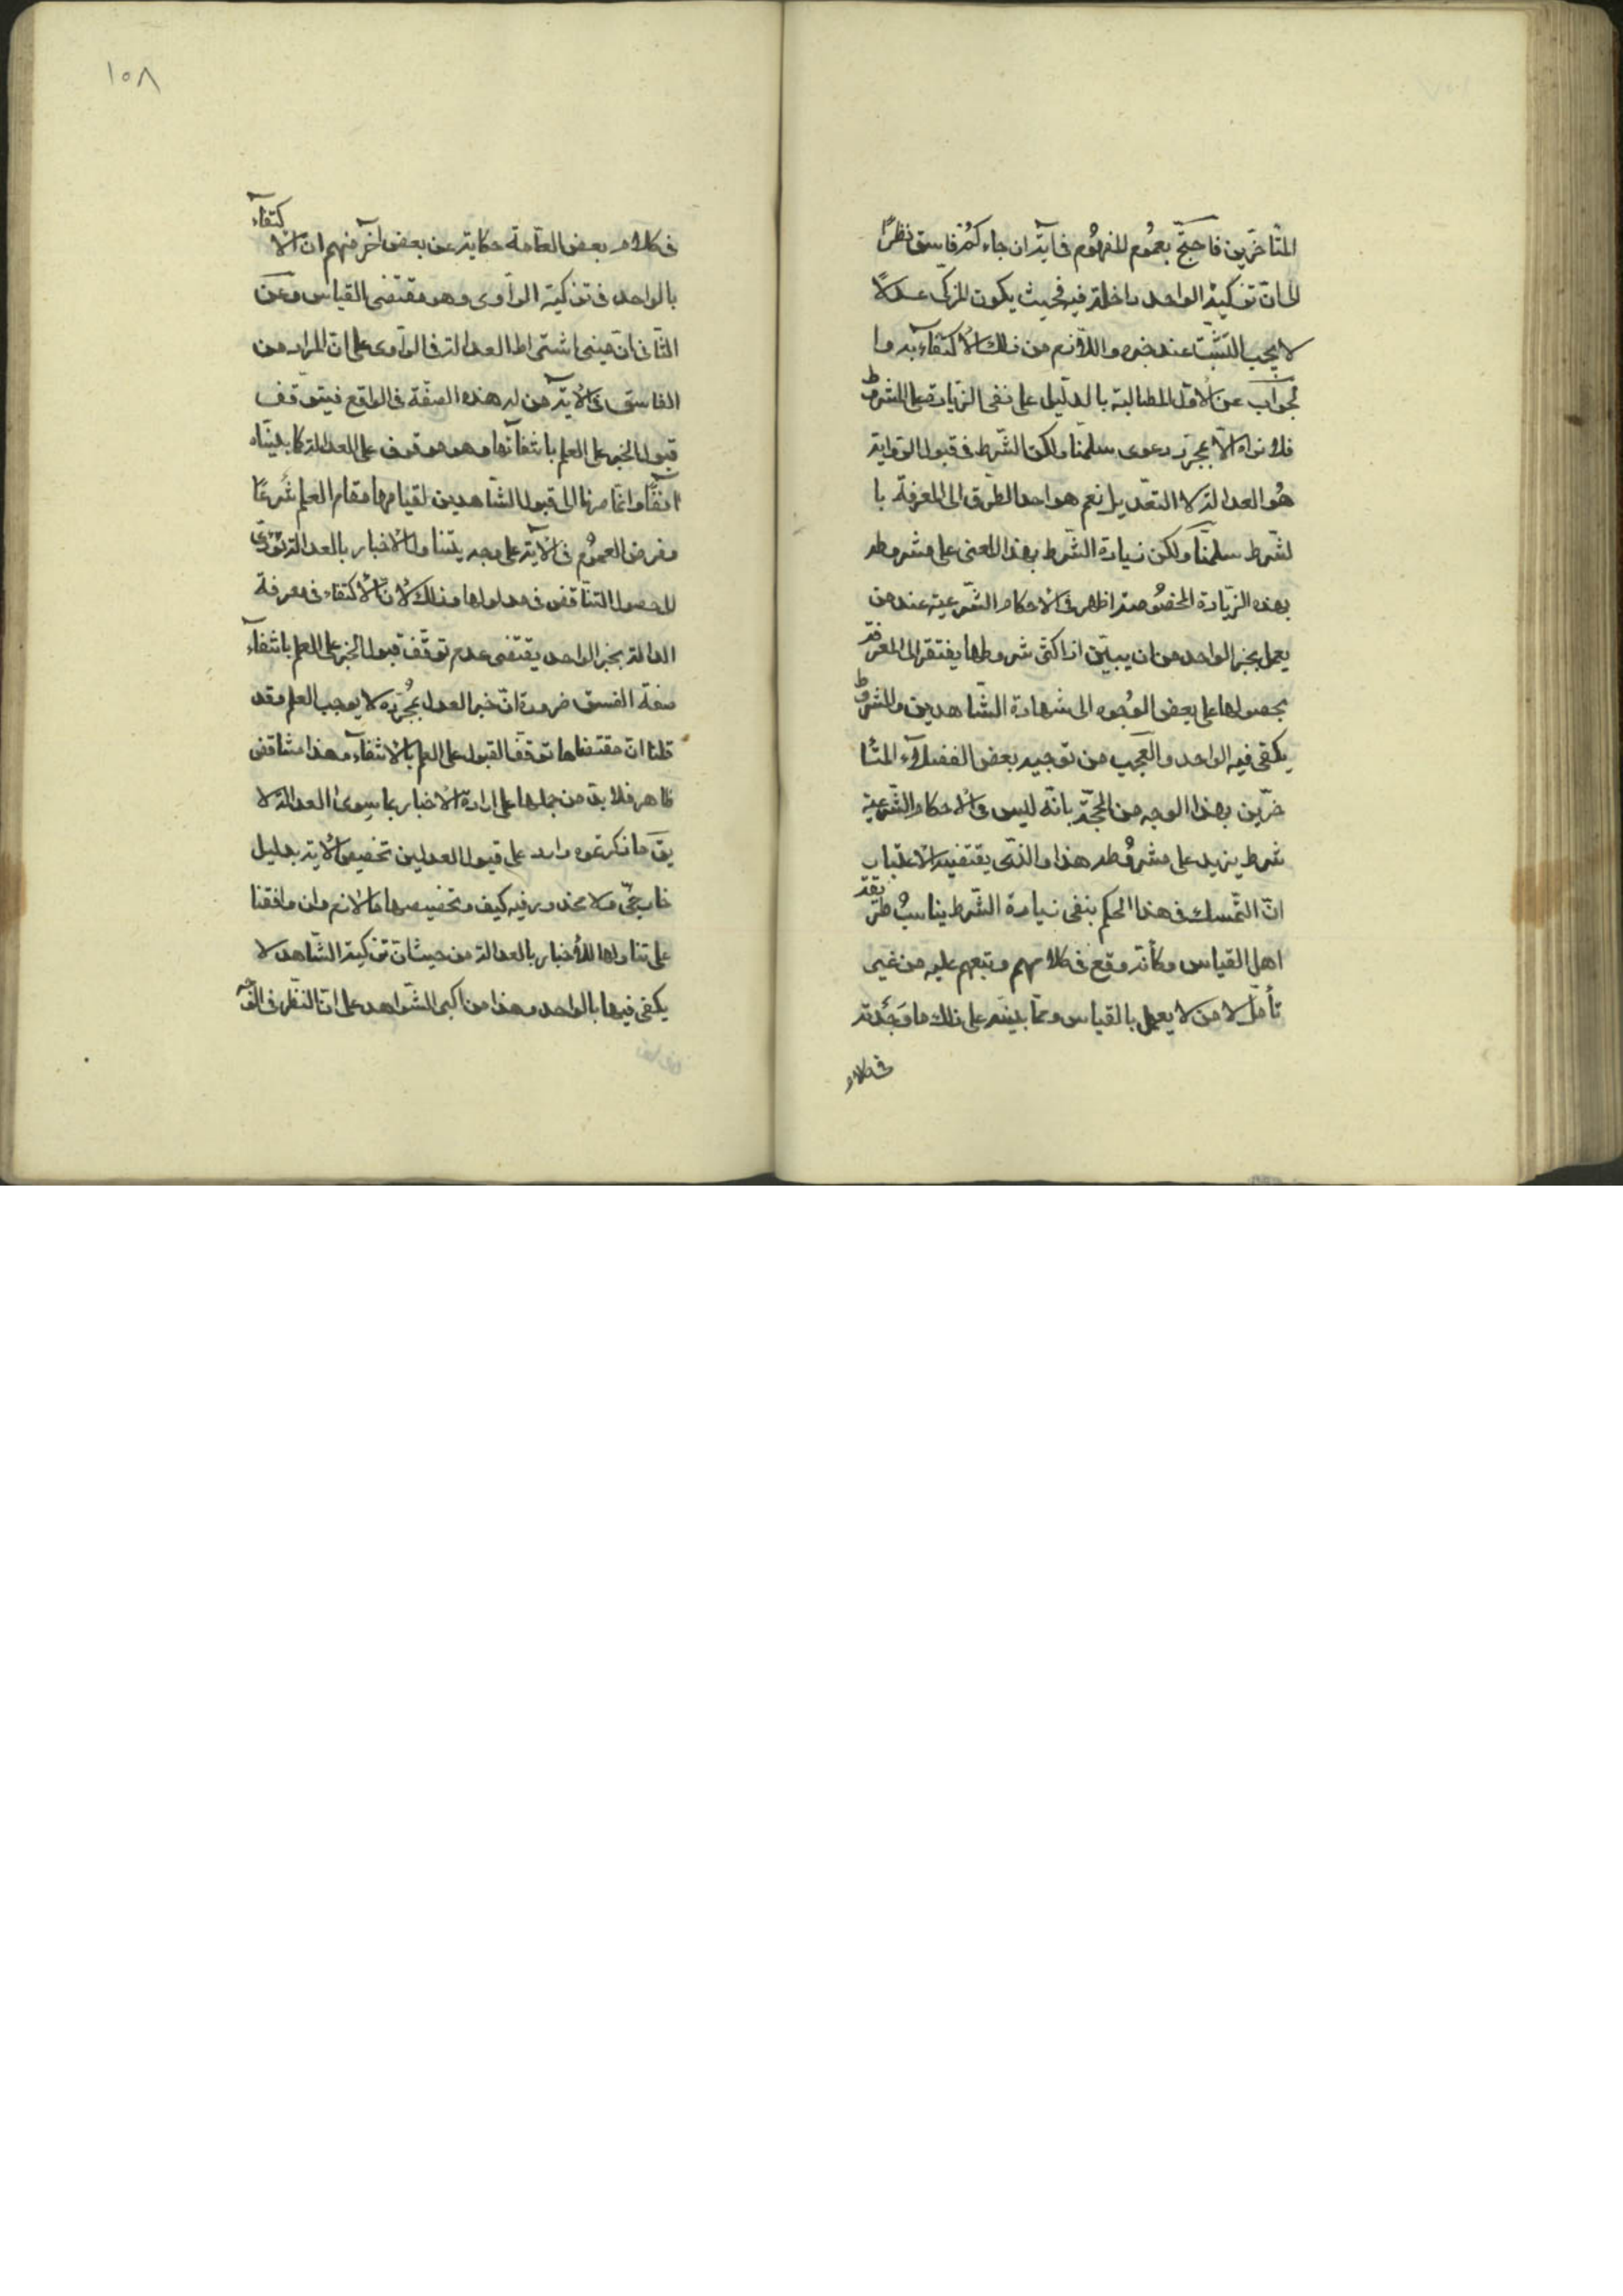 المتأخرين فاحتج بعموم المفهوم في آية ان جاءكم فاسق نظرًا
الى ان تزكية الواحد داخلة فيه فحيث يكون المزكي عدلًا
لا يجب التثبت عند خبره واللازم من ذلك الاكتفاء به وا
لجواب عن الاول المطالبة بالدليل على نفي الزيادة على المشروط
فلا نراه الا مجرد دعوى سلمنا ولكن الشرط في قبول الرواية
هو العدالة لا التعديل نعم هو احد الطرق الى المعرفة با
لشرط سلمنا ولكن زيادة الشرط بهذا المعنى على مشروطه
بهذه الزيادة المخصوصة اظهر في الاحكام الشرعية عند من
يعمل بخبر الواحد من ان يبين اذ اكثر شروطها يفتقر الى المعرفة
بحصولها على بعض الوجوه الى شهادة الشاهدين والمشروط
يكفي فيه الواحد والعجب من توجيه بعض الفضلاء المتأ
خرين بهذا الوجه من الحجة بانه ليس في الاحكام الشرعية
شرط يزيد على مشروطه هذا والذي يقتضيه الاعتبار
ان التمسك في هذا الحكم بنفي زيادة الشرط يناسب طريقة
اهل القياس وكأنه وقع في كلامهم وتبعهم عليه من غير
تأمل لا من لا يعمل بالقياس ومما ينبه على ذلك ما وجدته
في كلام
١٥٨
في كلام بعض العامة حكاية عن بعض آخر منهم ان الاكتفاء
بالواحد في تزكية الراوي وهو مقتضى القياس وعن
الثاني ان مبنى اشتراط العدالة في الراوي على ان المراد من
الفاسق في الاية من له هذه الصفة في الواقع فيتوقف
قبول الخبر على العلم بانتفائها وهو موقوف على العدالة كما بيناه
آنفًا وانما صرنا الى قبول الشاهدين لقيامهما مقام العلم شرعًا
وفرض العموم في الآية على وجه يتناول الاخبار بالعدالة يؤدي
لحصول التناقض في مدلولها وذلك لان الاكتفاء في معرفة
العدالة بخبر الواحد يقتضي عدم توقف قبول الخبر على العلم بانتفاء
صفة الفسق ضرورة ان خبر العدل بمجرده لا يوجب العلم وقد
قلنا ان مقتضاها توقف القبول على العلم بالانتفاء وهذا تناقض
ظاهر فلا بد من حملها على ارادة الاخبار بما سوى العدالة لا
يق ما ذكرتموه وارد على قبول العدلين تخصيص الآية بدليل
خارجي ولا محذور فيه كيف وتخصيصها لازم وان وافقنا
على تناولها للاخبار بالعدالة من حيث ان تزكية الشاهد لا
يكفي فيها بالواحد وهذا من اكبر الشواهد على ان النظر في الوجه